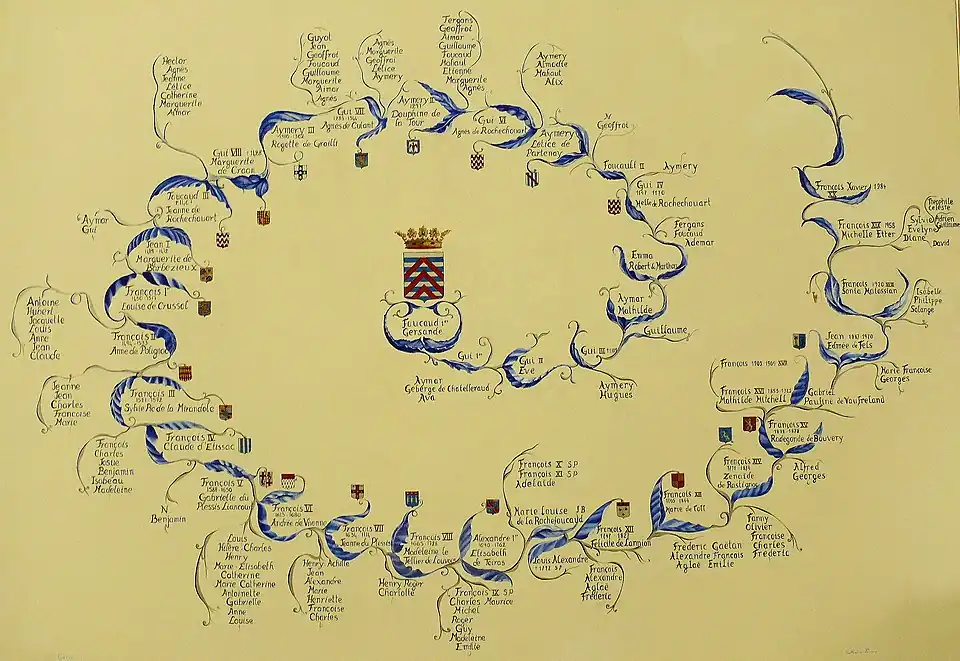 Foucaud 1er
Gersende
Gui 1er
Aymar
Geberge de Chatelleraud
Ava
Gui II
Eve
Gui III
Aymery
Hugues
Guillaume
Aymar
Mathilde
Emma
Robert de Marthon
Fergans
Foucaud
Ademar
Gui IV
Helle de Rochechouart
Aymery
Foucault II
Geoffroi
Aymery
Létice de
Partenay
Aymery
Almodie
Mahout
Alix
Gui VI
Agnès de Rochechouart
Tergans
Geoffroi
Aimar
Guillaume
Foucaud
Etienne
Marguerite
Agnès
Aymery II
Dauphine de
la Tour
Agnès
Marguerite
Geoffroi
Létice
Aymery
Gui VII
Agnès de Culant
Guyot
Jean
Geoffroi
Foucaud
Guillaume
Marguerite
Aimar
Agnès
Aymery III
Rogette de Grailli
Gui VIII
Marguerite
de Craon
Hector
Agnès
Jeanne
Létice
Catherine
Marguerite
Aimar
Foucaud III
Jeanne de
Rochechouart
Aymar
Gui
Jean I
Marguerite de
Barbezieux
François I
Louise de Crussol
Antoine
Hubert
Jacquette
Louis
Anne
Jean
Claude
François II
Anne de Polignac
François III
Sylvie Pic de la Mirandole
Jeanne
Jean
Charles
Françoise
Marie
François IV
Claude d'Estissac
François
Charles
Josué
Benjamin
Isabeau
Madeleine
François V
Gabrielle du
Plessis Liancourt
N
Benjamin
François VI
Andrée de Vivonne
Louis
Hilaire-Charles
Henry
Marie-Elisabeth
Catherine
Marie Catherine
Antoinette
Gabrielle
Anne
Louise
François VII
Jeanne du Plessis
Henry Achille
Jean
Alexandre
Marie
Henriette
Françoise
Charles
François VIII
Madeleine le
Tellier de Louvois
Henry Roger
Charlotte
Alexandre 1er
Elisabeth
de Toiras
François IX S.P
Charles Maurice
Michel
Roger
Guy
Madeleine
Emilie
François X S.P
François XI S.P
Adelaide
Marie Louise
de la Rochefoucauld
Louis Alexandre
François XII
Felicite de Lannion
François
Alexandre
Aglaé
Frédéric
François XIII
Marie de Tott
Frederic Gaëtan
Alexandre François
Aglae Emilie
François XIV
Zenaïde
de Rastignac
Fanny
Olivier
Françoise
Charles
Frederic
François XV
Radegonde de Bouvery
Alfred
Georges
François XVI
Mathilde Mitchell
François 1905 1909 XVII
Gabriel
Pauline de Vaufreland
Jean
Edmée de Fels
Marie Françoise
Georges
François 1920 XVIII
Sonia Matossian
Isabelle
Philippe
Solange
François XIX 1958
Michelle Etter
Sylvie
Evelyne
Diane
Théophile
Celeste
Adrien
Guillaume
David
François Xavier 1984
XX